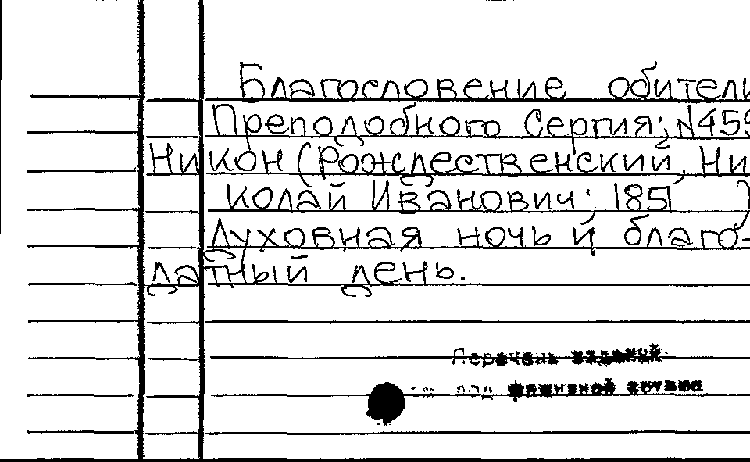 Благословение обители
Преподобного Сергия; №459
Никон (Рождественский, Ни-
колай Иванович; 1851 )
Духовная ночь и благо-
датный день.
Перечень изданий
см. под